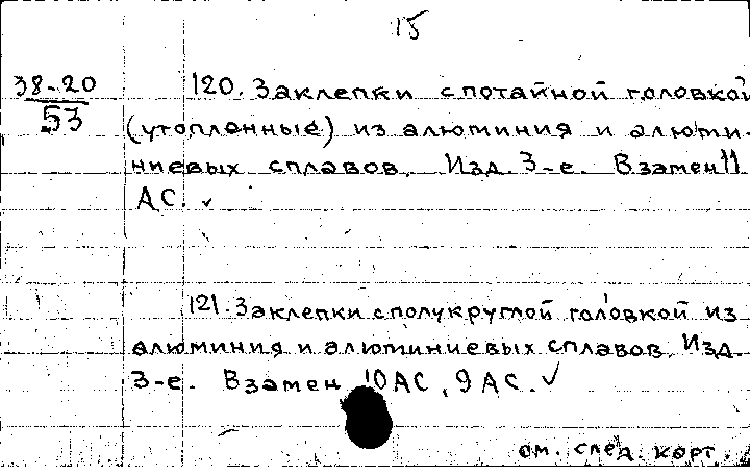 15
38-20
53
120. Заклепки с потайной головкой
(утопленные) из алюминия и алюми-
ниевых сплавов. Изд. 3-е. Взамен 11
АС. ✓
121. Заклепки с полукруглой головкой из
алюминия и алюминиевых сплавов. Изд.
3-е. Взамен 10АС, 9АС. ✓
см. след. карт.